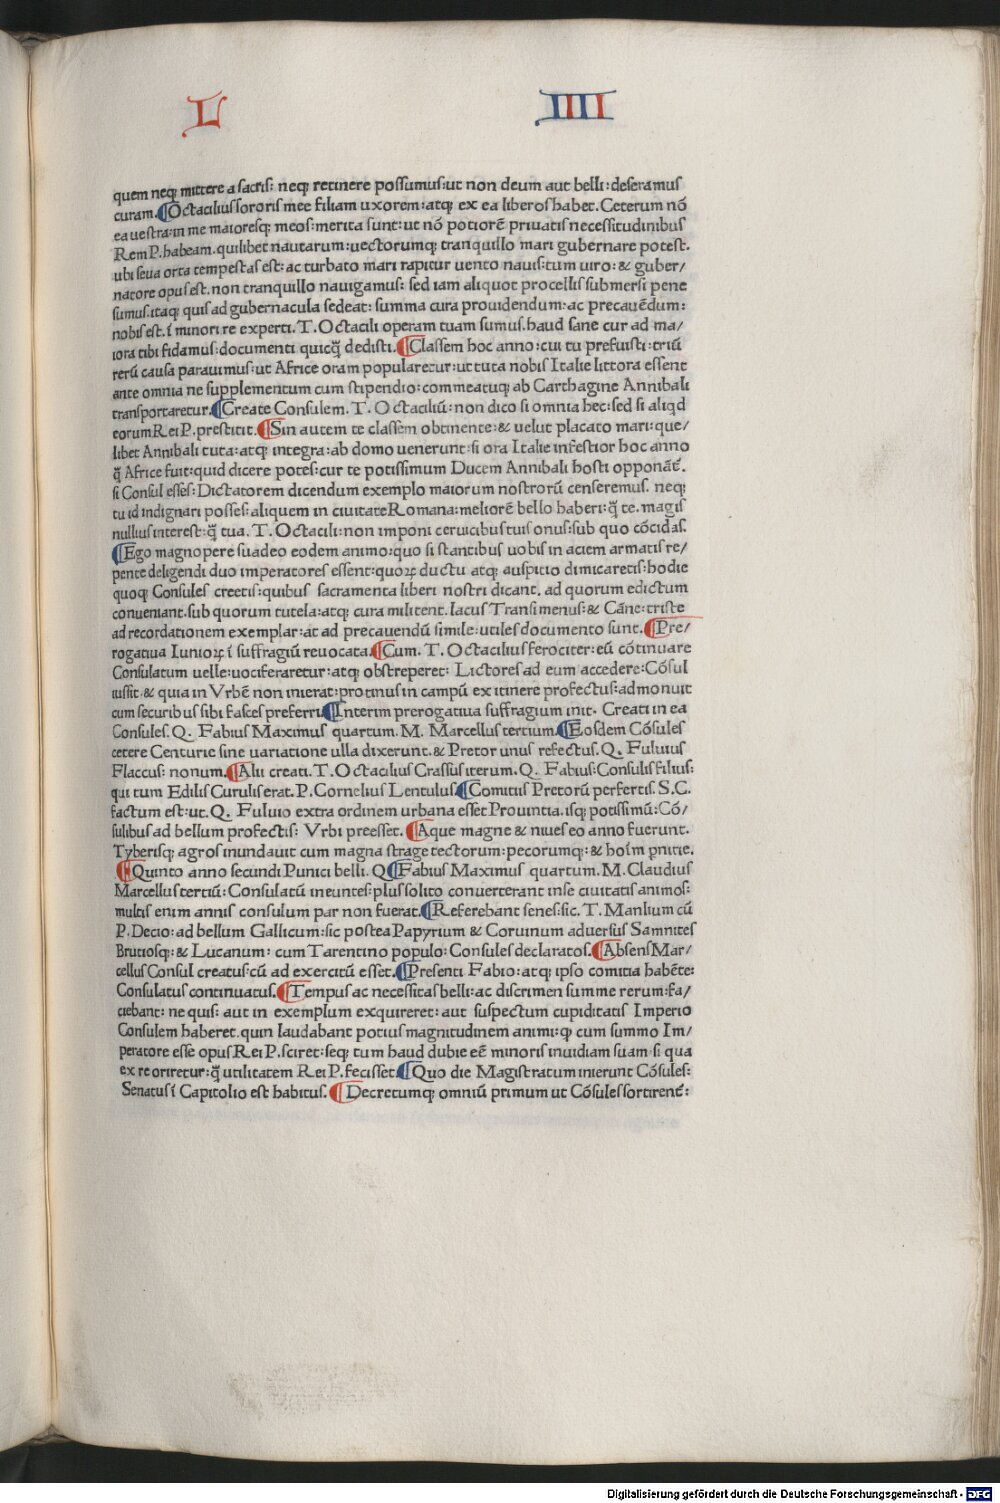 L IIII
quem neqꝫ mittere a sacris: neqꝫ retinere possumus: ut non deum aut belli: deseramus
curam. ¶Octacilius sororis mee filiam uxorem: atqꝫ ex ea liberos habet. Ceterum nō
ea uestra: in me maioresqꝫ meos: merita sunt: ut nō potiorē priuatis necessitudinibus
Rem P. habeam. quilibet nautarum: uectorumqꝫ tranquillo mari gubernare potest.
ubi seua orta tempestas est: ac turbato mari rapitur uento nauis: tum uiro: & guber/
natore opus est. non tranquillo nauigamus: sed iam aliquot procellis submersi pene
sumus. itaqꝫ quis ad gubernacula sedeat: summa cura prouidendum: ac precauēdum:
nobis est. ī minori re experti. T. Octacili operam tuam sumus. haud sane cur ad ma/
iora tibi fidamus: documenti quicq̄ dedisti. ¶Classem hoc anno: cui tu prefuisti: triū
rerū causa parauimus: ut Africe oram popularetur: ut tuta nobis Italie littora essent
ante omnia ne supplementum cum stipendio: commeatuqꝫ ab Carthagine Annibali
transportaretur. ¶Create Consulem. T. Octaciliū: non dico si omnia hec: sed si aliqd
eorum Rei P. prestitit. ¶Sin autem te classem obtinente: & uelut placato mari: que/
libet Annibali tuta: atqꝫ integra: ab domo uenerunt: si ora Italie infestior hoc anno
q̄ Africe fuit: quid dicere potes: cur te potissimum Ducem Annibali hosti opponāt.
si Consul esses: Dictatorem dicendum exemplo maiorum nostrorū censeremus. neqꝫ
tu id indignari posses: aliquem in ciuitate Romana: meliorē bello haberi: q̄ te. magis
nullius interest: q̄ tua. T. Octacili: non imponi ceruicibus tuis onus: sub quo cōcidas.
¶Ego magnopere suadeo eodem animo: quo si stantibus uobis in aciem armatis re/
pente deligendi duo imperatores essent: quoꝝ ductu atqꝫ auspitio dimicaretis: hodie
quoqꝫ Consules creetis: quibus sacramenta liberi nostri dicant. ad quorum edictum
conueniant. sub quorum tutela: atqꝫ cura militent. lacus Transimenus: & Cāne: triste
ad recordationem exemplar: at ad precauendū simile: utiles documento sunt. ¶Pre/
rogatiua Iunioꝝ ī suffragiū reuocata. ¶Cum. T. Octacilius ferociter: eū cōtinuare
Consulatum uelle: uociferaretur: atqꝫ obstreperet: Lictores ad eum accedere: Cōsul
iussit. & quia in Vrbē non inierat: protinus in campū ex itinere profectus: admonuit
cum securibus sibi fasces preferri ¶Interim prerogatiua suffragium init. Creati in ea
Consules. Q. Fabius Maximus quartum. M. Marcellus tertium. ¶Eosdem Cōsules
cetere Centurie sine uariatione ulla dixerunt. & Pretor unus refectus. Q. Fuluius
Flaccus: nonum. ¶Alii creati. T. Octacilius Crassus iterum. Q. Fabius: Consulis filius:
qui tum Edilis Curulis erat. P. Cornelius Lentulus. ¶Comitiis Pretorū perfectis. S.C.
factum est: ut. Q. Fuluio extra ordinem urbana esset Prouintia. isqꝫ potissimū: Cō/
sulibus ad bellum profectis: Vrbi preesset. ¶Aque magne & niues eo anno fuerunt.
Tyberisqꝫ agros inundauit cum magna strage tectorum: pecorumqꝫ: & hoīm ꝑnitie.
¶Quinto anno secundi Punici belli. Q ¶Fabius Maximus quartum. M. Claudius
Marcellus tertiū: Consulatū ineuntes: plus solito conuerterant in se ciuitatis animos:
multis enim annis consulum par non fuerat. ¶Referebant senes: sic. T. Manlium cū
P. Decio: ad bellum Gallicum: sic postea Papyrium & Coruinum aduersus Samnites
Brutiosqꝫ: & Lucanum: cum Tarentino populo: Consules declaratos. ¶Absens Mar/
cellus Consul creatus: cū ad exercitū esset. ¶Presenti Fabio: atqꝫ ipso comitia habēte:
Consulatus continuatus. ¶Tempus ac necessitas belli: ac discrimen summe rerum: fa/
ciebant: ne quis: aut in exemplum exquireret: aut suspectum cupiditatis Imperio
Consulem haberet. quin laudabant potius magnitudinem animi: ꝙ cum summo Im/
peratore esse opus Rei P. sciret: seqꝫ tum haud dubie eē minoris inuidiam suam. si qua
ex re oriretur: q̄ utilitatem Rei P. fecisset ¶Quo die Magistratum inierunt Cōsules:
Senatus ī Capitolio est habitus. ¶Decretumqꝫ omniū primum ut Cōsules sortirent̄:
Digitalisierung gefördert durch die Deutsche Forschungsgemeinschaft - DFG